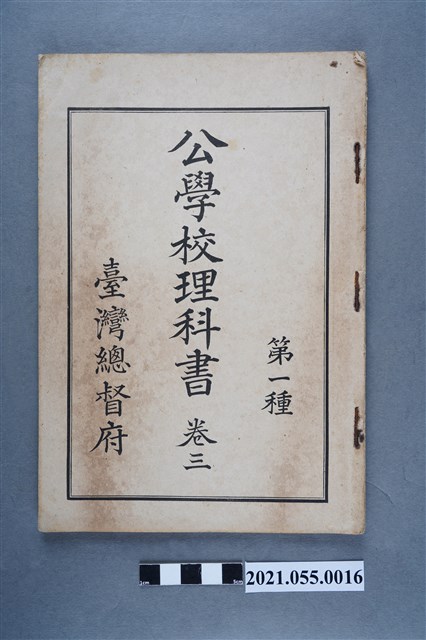 第一種
公學校理科書 卷三
臺灣總督府
1cm 5cm
2021.055.0016